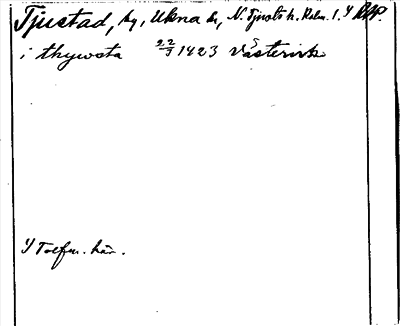 Tjustad, by, Ukna sn, N. Tjusts h. Kalm. l. Y RAP.
i thywsta 22/7 1423 Västervik
Y Tolfm. här.